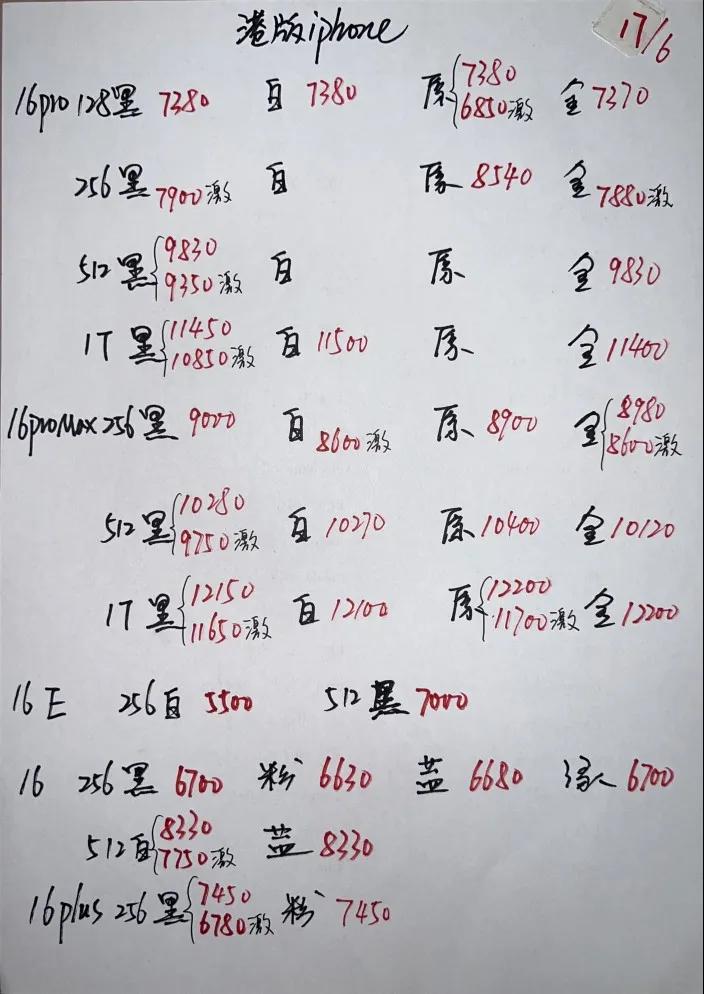 港版iphone 17/6
16pro 128黑 7380 白 7380 原{7380 6850激 金 7370
256黑 7900激 白 原 8540 金 7880激
512黑{9830 9350激 白 原 金 9830
1T 黑{11450 10850激 白 11500 原 金 11400
16proMax 256黑 9000 白 8600激 原 8900 金{8980 8600激
512黑{10280 9750激 白 10270 原 10400 金 10120
1T 黑{12150 11650激 白 12100 原{12200 11700激 金 12200
16E 256白 5500 512黑 7000
16 256黑 6700 粉 6630 蓝 6680 绿 6700
512白{8330 7750激 蓝 8330
16plus 256黑{7450 6780激 粉 7450